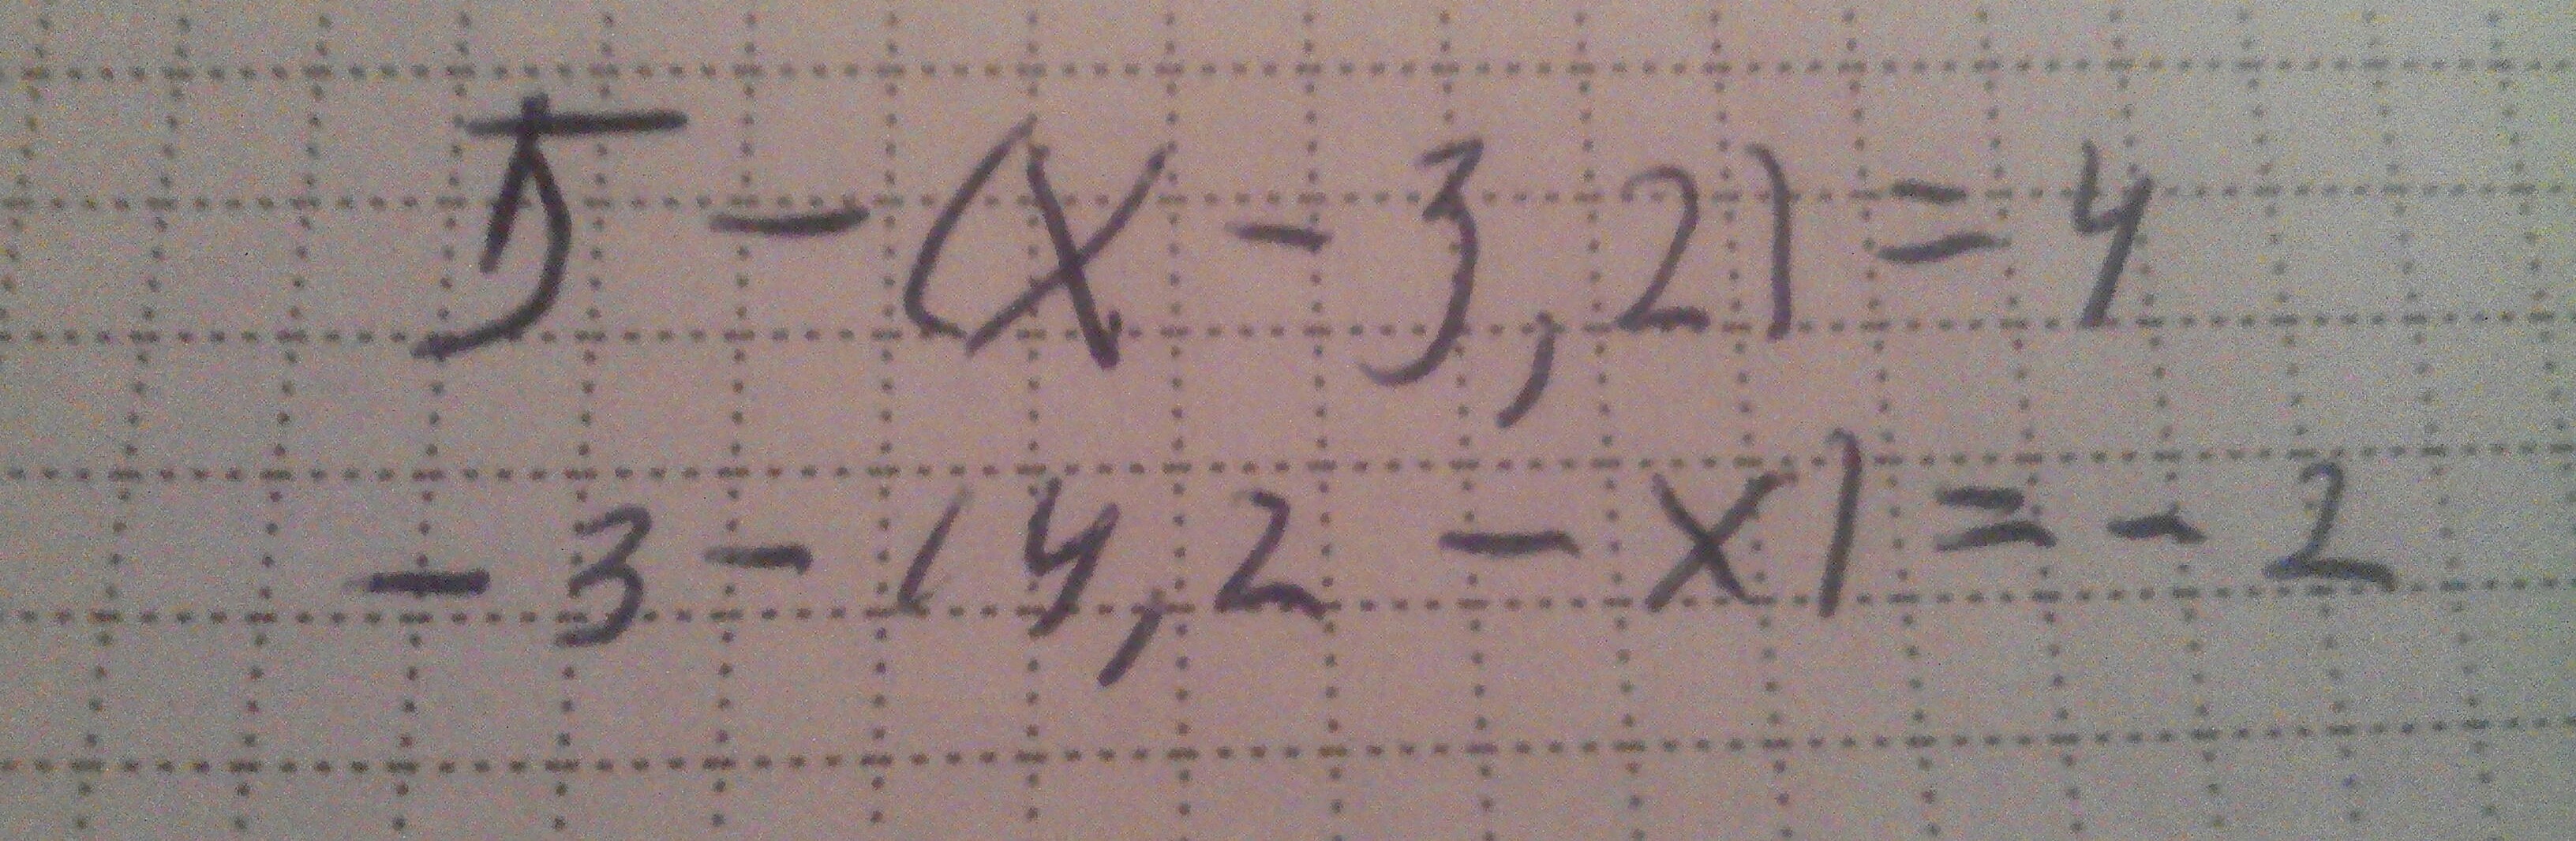 5 - (x - 3,2) = 4
- 3 - (4,2 - x) = - 2